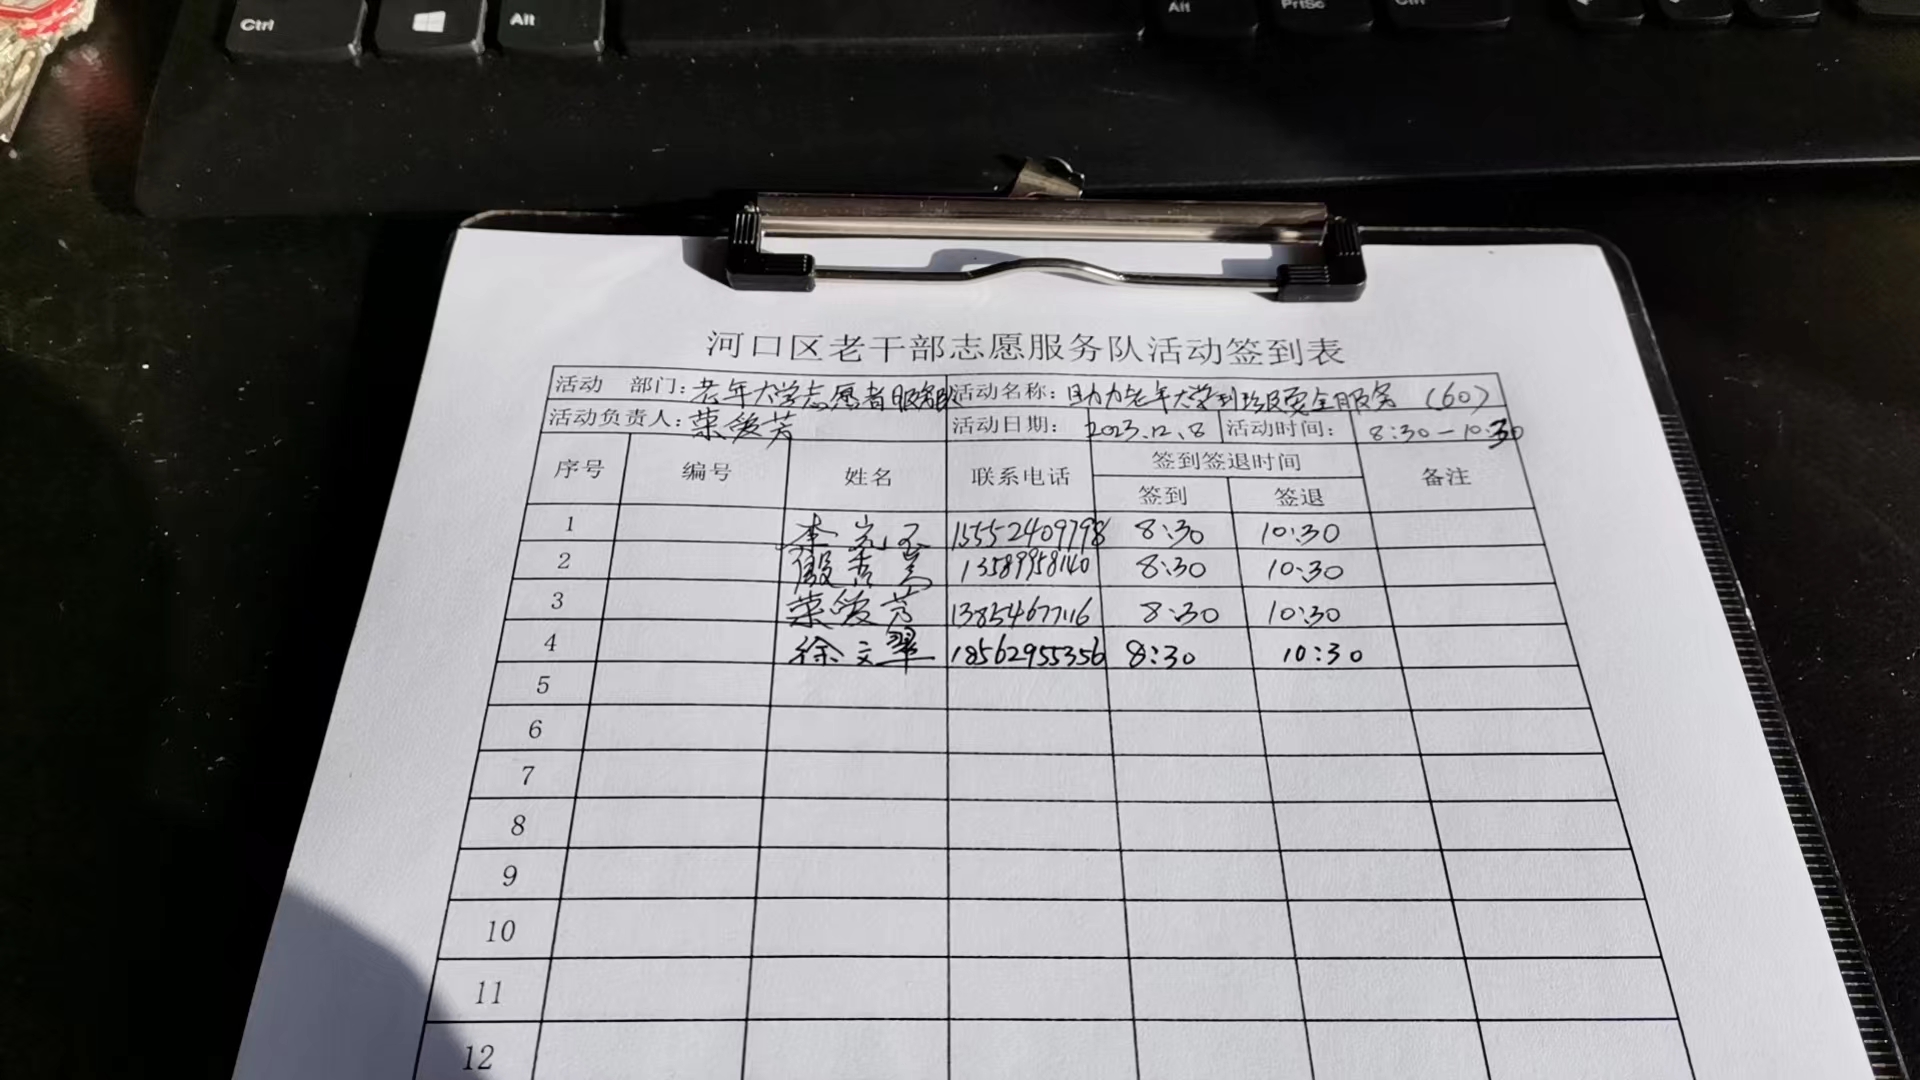 Ctrl Alt Alt PrtSc Ctrl
河口区老干部志愿服务队活动签到表
活动 部门：老年大学志愿者服务队 活动名称：助力老年大学 服务（60）
活动负责人：荣爱芳 活动日期：2023.12.8 活动时间：8:30-10:30
序号 编号 姓名 联系电话 签到签退时间 备注
签到 签退
1 李 玉 15552409798 8:30 10:30
2 殷秀兰 13589958140 8:30 10:30
3 荣爱芳 13854677116 8:30 10:30
4 徐文翠 18562955356 8:30 10:30
5
6
7
8
9
10
11
12